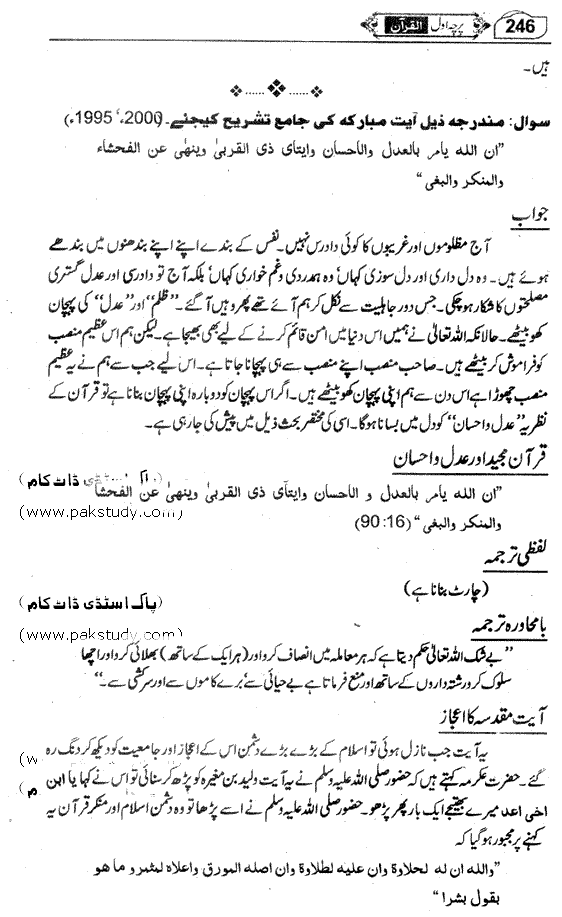 246 پرچہ اول القرآن
ہیں۔
سوال: مندرجہ ذیل آیت مبارکہ کی جامع تشریح کیجئے۔ (2000ء، 1995ء)
"ان الله يامر بالعدل والاحسان وايتاى ذى القربىٰ وينهىٰ عن الفحشاء
والمنكر والبغى"
جواب
آج مظلوموں اور غریبوں کا کوئی دادرس نہیں۔ نفس کے بندے اپنے اپنے بندھنوں میں بندھے
ہوئے ہیں۔ وہ دل داری اور دل سوزی کہاں' وہ ہمدردی و غم خواری کہاں' بلکہ آج تو دادرسی اور عدل گستری
مصلحتوں کا شکار ہو چکی۔ جس دور جاہلیت سے نکل کر ہم آئے تھے پھر وہیں آ گئے۔ "ظلم" اور "عدل" کی پہچان
کھو بیٹھے۔ حالانکہ اللہ تعالیٰ نے ہمیں اس دنیا میں امن قائم کرنے کے لیے بھی بھیجا ہے۔ لیکن ہم اس عظیم منصب
کو فراموش کر بیٹھے ہیں۔ صاحب منصب اپنے منصب سے ہی پہچانا جاتا ہے۔ اس لیے جب سے ہم نے یہ عظیم
منصب چھوڑا ہے اس دن سے ہم اپنی پہچان کھو بیٹھے ہیں۔ اگر اس پہچان کو دوبارہ اپنی پہچان بنانا ہے تو قرآن کے
نظریہ "عدل و احسان" کو دل میں بسانا ہوگا۔ اسی کی مختصر بحث ذیل میں پیش کی جا رہی ہے۔
قرآن مجید اور عدل و احسان
پاک اسٹڈی ڈاٹ کام)
"ان الله يامر بالعدل و الاحسان وايتآى ذى القربىٰ وينهىٰ عن الفحشآ
(www.pakstudy.com)
والمنكر والبغى" (90:16)
لفظی ترجمہ
(چارٹ بنانا ہے)
پاک اسٹڈی ڈاٹ کام)
بامحاورہ ترجمہ
(www.pakstudy.com
"بے شک اللہ تعالیٰ حکم دیتا ہے کہ ہر معاملہ میں انصاف کرو اور (ہر ایک کے ساتھ) بھلائی کرو اور اچھا
سلوک کرو رشتہ داروں کے ساتھ اور منع فرماتا ہے بے حیائی سے' برے کاموں سے اور سرکشی سے۔"
آیت مقدسہ کا اعجاز
یہ آیت جب نازل ہوئی تو اسلام کے بڑے بڑے دشمن اس کے اعجاز اور جامعیت کو دیکھ کر دنگ رہ
(w
گئے۔ حضرت عکرمہ کہتے ہیں کہ حضور صلی اللہ علیہ وسلم نے یہ آیت ولید بن مغیرہ کو پڑھ کر سنائی تو اس نے کہا یا ابن
م)
اخی اعد میرے بھتیجے ایک بار پھر پڑھو۔ حضور صلی اللہ علیہ وسلم نے اسے پڑھا تو وہ دشمن اسلام اور منکر قرآن یہ
کہنے پر مجبور ہو گیا کہ
"والله ان له لحلاوة وان عليه لطلاوة وان اصله المورق واعلاه لمثمرو ما هو
بقول بشرا"